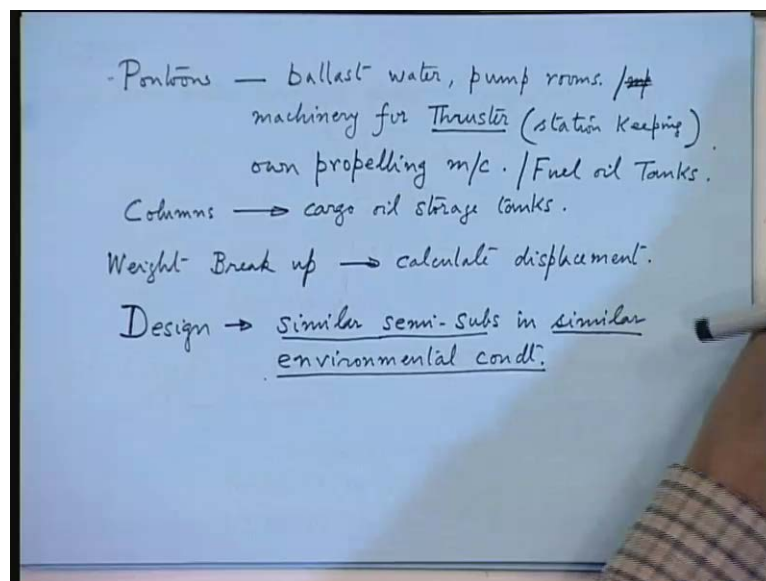 - Pontoons — ballast water, pump rooms. /
machinery for Thruster (station keeping)
own propelling m/c. / Fuel oil Tanks.
Columns → cargo oil storage tanks.
Weight Break up → calculate displacement.
Design → similar semi-subs in similar
environmental condt.